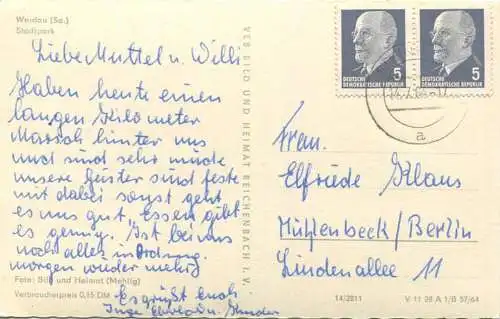 Werdau (Sa.)
Stadtpark
Liebe Muttel u. Willi
Haben heute einen
langen Kilometer
Marsch hinter uns
und sind sehr müde
unsere Geister sind feste
mit dabei sonst geht
es uns gut. Essen gibt
es genug. Ist bei uns
noch alles in Ordnung.
morgen wieder mehr
Foto: Bild und Heimat (Mehlig)
Verbraucherpreis 0,15 DM
Es grüßt euch
Inge Kinder
VEB BILD UND HEIMAT REICHENBACH I. V.
5 5
DEUTSCHE DEUTSCHE
DEMOKRATISCHE REPUBLIK DEMOKRATISCHE REPUBLIK
a
Frau.
Elfriede Klaus
Mühlenbeck/Berlin
Lindenallee 11
14/2811 V 11 28 A 1/B 57/64